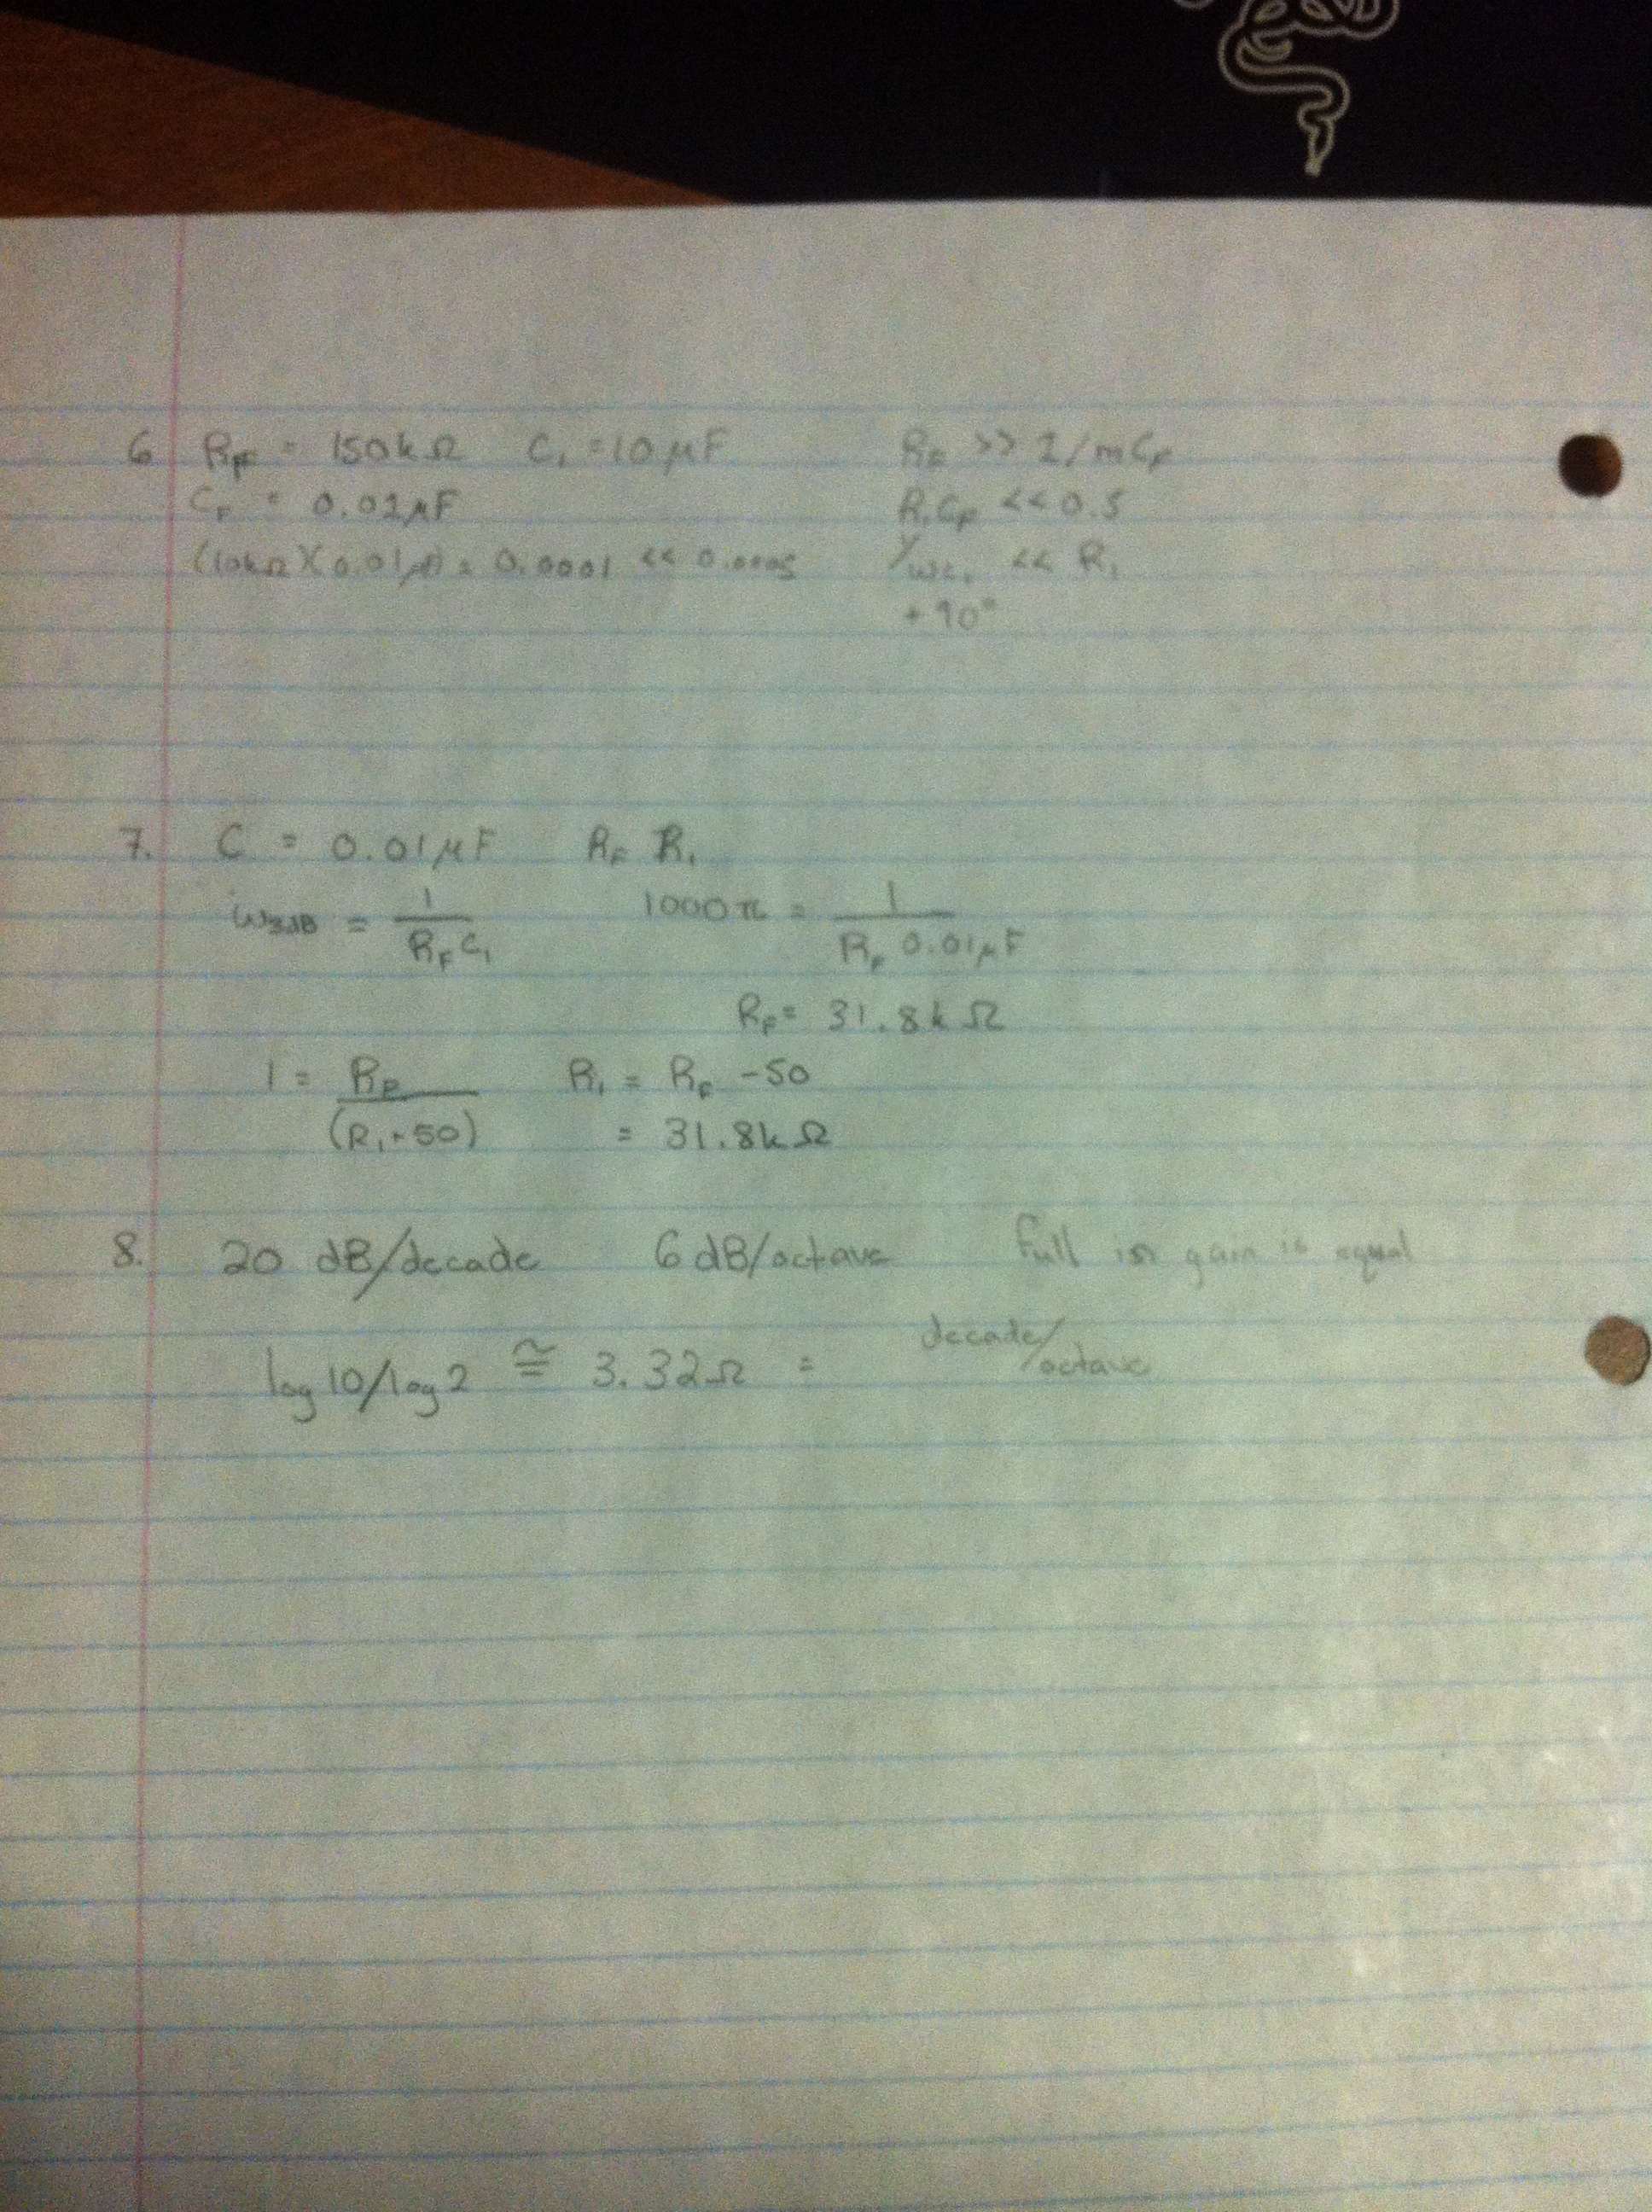 6 R_F = 150kΩ C₁ = 10 μF R_F >> 1/mC_F
C_F = 0.01μF R₁C_F << 0.5
(10kΩ)(0.01μ) = 0.0001 << 0.0005 1/wc₁ << R₁
+90°
7. C = 0.01μF R_F R₁
ω3dB = 1/(R_F C₁) 1000π = 1/(R_F 0.01μF)
R_F = 31.8kΩ
1 = R_F/(R₁+50) R₁ = R_F -50
= 31.8kΩ
8. 20 dB/decade 6dB/octave Full in gain is equal
log10/log2 ≅ 3.32Ω = decade/octave